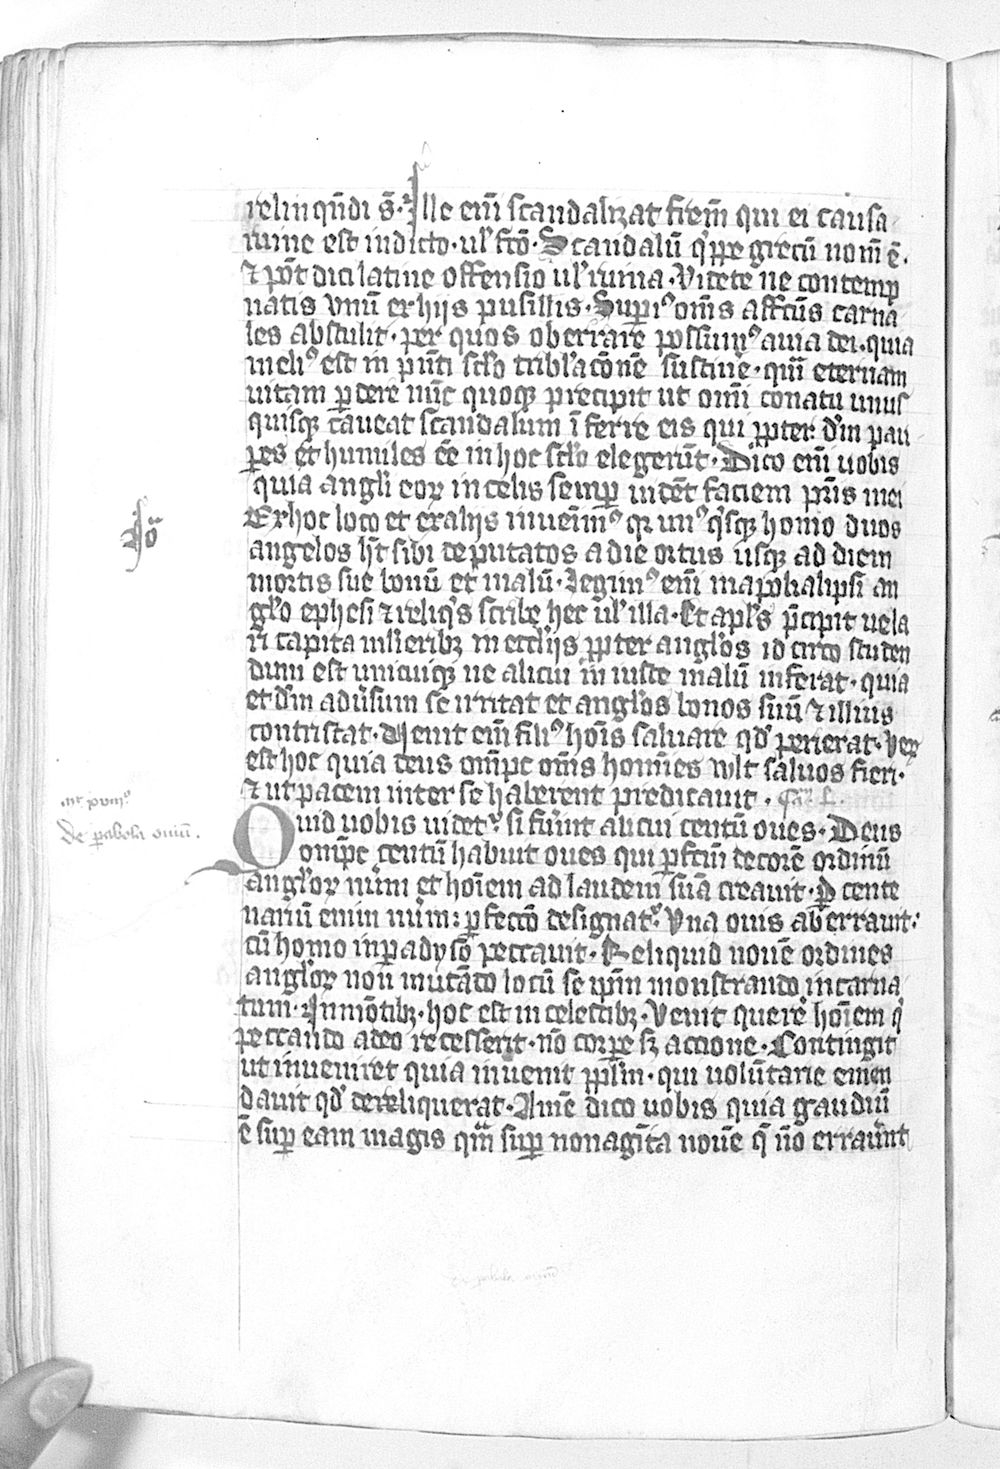 relinqūdi s̄. Ille em̄ scandalizat frēm qui ei causa
ruine est in dicto. ul' fc̄o. Scandalū q̄ppe grecū nom̄ ē.
⁊ pōt dici latine offensio ul' ruina. Videte ne contemp
natis vnū ex hijs pusillis. Suꝑi᷒ om̄s affc̄us carna
les abstulit. per quos oberrare possum᷒ a uia dei. quia
meli᷒ est in p̄nti sc̄lo tribl'acōnē sustinē. qm̄ eternam
uitam ꝑdere nūc quoqꝫ precipit ut om̄i conatu unus
quisqꝫ caueat scandalum īferre eis qui ꝓpter dm̄ pau
ꝑes et humiles eē in hoc sc̄lo elegerūt. Dico em̄ uobis
quia angl'i eoꝝ in celis semꝑ uidēt faciem pr̄is mei
Ex hoc loco et ex alijs inuenim᷒ qr un᷒ qⁱsqꝫ homo duos
angelos hēt sibi deputatos a die ortus usqꝫ ad diem
mortis sue bonū et malū. Legim᷒ em̄ in apokalipsi an
gl'o ephesi ⁊ reliqⁱs scribe hec ul' illa. Et apl's p̄cipit uela
ri capita mlieribꝫ in eccl'ijs ꝓpter angl'os id circo studen
dum est unicuiqꝫ ne alicui iniuste malū inferat. quia
et dm̄ aduersum se irritat et angl'os bonos suū ⁊ illius
contristat. Venit em̄ fili᷒ hoīs saluare qd' perierat. Veꝝ
est hoc quia deus om̄pc om̄s homines wlt saluos fieri.
⁊ ut pacem inter se haberent predicauit.
Quid uobis uidet᷑ si fūint alicui centū oues. Deus
om̄pc centū habuit oues qui ꝑfc̄m decorē ordinū
angl'oꝝ nūm et hoīem ad laudem suā creauit. ꝑ cente
nariū enim nūm ꝑfeccō designat᷑. Una ouis aberrauit.
cū homo in ꝑadyso peccauit. Reliquid nouē ordines
angl'oꝝ non mutādo locū se ip̄m monstrando incarna
tum. In mōtibꝫ. hoc est in celestibꝫ. Venit querē hoīem qⁱ
peccando adeo recesserit. nō corꝑe sꝫ accione. Contingit
ut inueniret quia inuenit ppl'm. qui uolūtarie emen
dauit qd' dereliquerat. Amē dico uobis quia gaudiū
ē suꝑ eam magis qm̄ suꝑ nonagīta nouē q̄ nō erraūnt
Io᷑
De parabola ouiū.